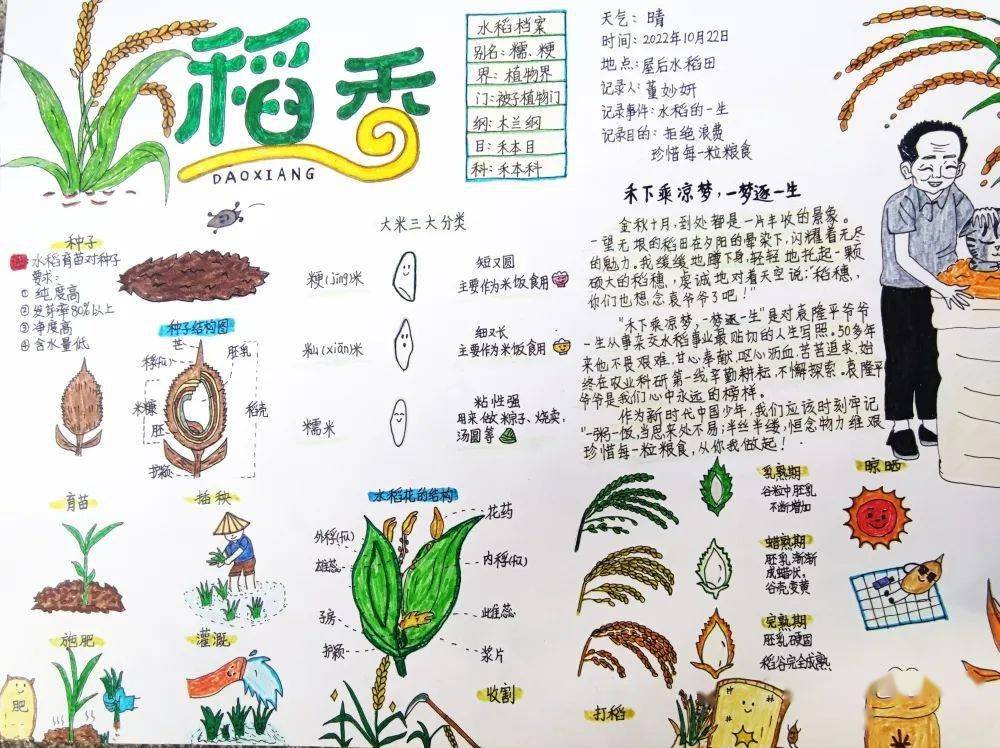 稻香
DAOXIANG
水稻档案
别名：糯、粳
界：植物界
门：被子植物门
纲：木兰纲
目：禾本目
科：禾本科
天气：晴
时间：2022年10月22日
地点：屋后水稻田
记录人：董妙妍
记录事件：水稻的一生
记录目的：拒绝浪费
珍惜每一粒粮食
禾下乘凉梦，一梦逐一生
金秋十月，到处都是一片丰收的景象。
一望无垠的稻田在夕阳的晕染下，闪耀着无尽
的魅力。我缓缓地蹲下身，轻轻地托起一颗
硕大的稻穗，虔诚地对着天空说："稻穗，
你们也想念袁爷爷了吧！"
"禾下乘凉梦，一梦逐一生"是对袁隆平爷爷
一生从事杂交水稻事业最贴切的人生写照。50多年
来他不畏艰难，甘心奉献，呕心沥血，苦苦追求，始
终在农业科研第一线辛勤耕耘，不懈探索。袁隆平
爷爷是我们心中永远的榜样。
作为新时代中国少年，我们应该时刻牢记
"一粥一饭，当思来处不易；半丝半缕，恒念物力维艰
珍惜每一粒粮食，从你我做起！
种子
水稻育苗对种子
要求：
①纯度高
②发芽率80%以上
③净度高
④含水量低
种子结构图
芒
稃(fū)
胚乳
米糠
稻壳
胚
护颖
大米三大分类
粳(jīng)米
短又圆
主要作为米饭食用
籼(xiān)米
细又长
主要作为米饭食用
糯米
粘性强
用来做粽子、烧卖，
汤圆等
育苗
插秧
施肥
肥
灌溉
水稻花的结构
花药
外稃(fū)
内稃(fū)
雄蕊
雌蕊
子房
护颖
浆片
收割
乳熟期
谷粒中胚乳
不断增加
蜡熟期
胚乳渐渐
成蜡状，
谷壳变黄
完熟期
胚乳硬固
稻谷完全成熟
晾晒
打稻